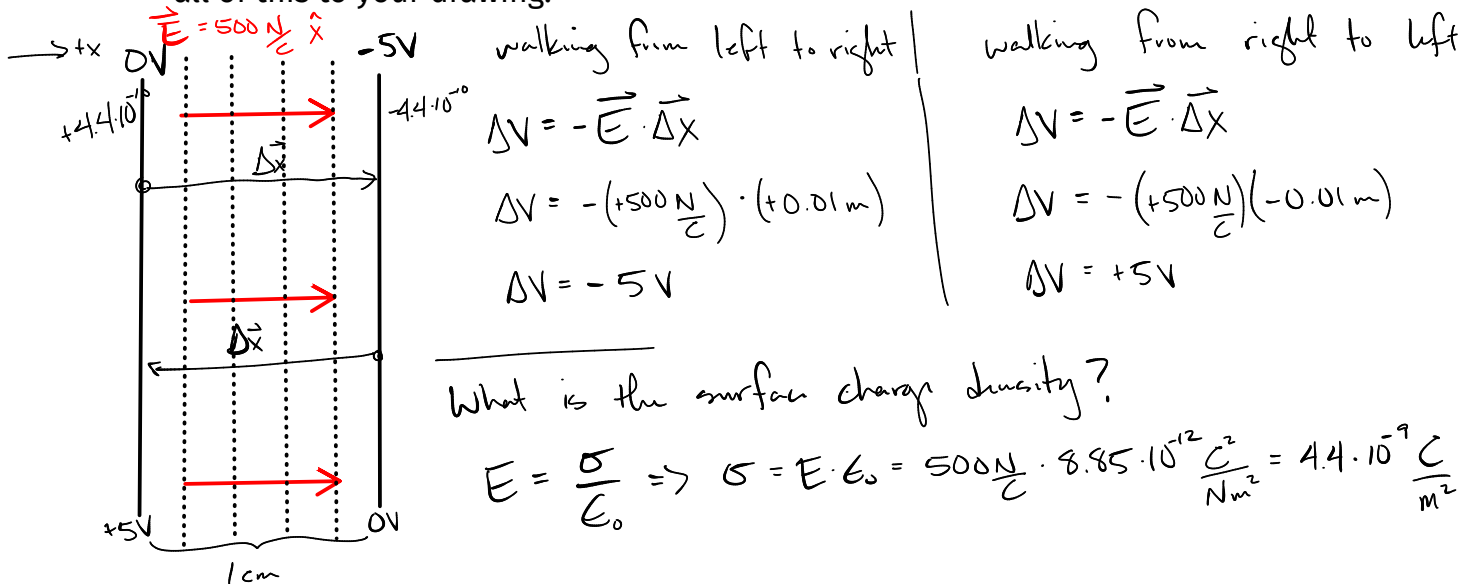 all of this to your drawing.
E⃗ = 500 N/C x̂
→ +x
0V
-5V
+4.4·10⁻¹⁰
-4.4·10⁻¹⁰
Δx⃗
Δx⃗
+5V
0V
1 cm
walking from left to right
ΔV = -E⃗ · Δx⃗
ΔV = -(+500 N/C) · (+0.01 m)
ΔV = - 5 V
walking from right to left
ΔV = -E⃗ · Δx⃗
ΔV = -(+500 N/C)(-0.01 m)
ΔV = +5 V
What is the surface charge density?
E = σ/ϵ₀ => σ = E·ϵ₀ = 500 N/C · 8.85·10⁻¹² C²/Nm² = 4.4·10⁻⁹ C/m²